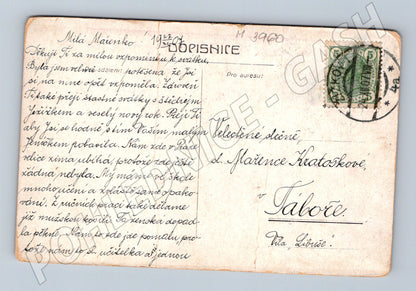 Milá Mařenko! 19 22/12 07
M 3960
DOPISNICE
Děkuje Ti za milou vzpomínku k svátku.
Byla jsem velice potěšena že jsi
si na mne opět vzpomněla. Zároveň
Ti také přeji šťastné svátky s štědrým
Ježíškem a veselý nový rok. Přeji Ti
aby jsi se hodně s tím Vaším malým
Jeníčkem pobavila. Nám zde v Ra-
dnice zima ubíhá, protože zde ještě
žádná nebyla. My máme ve škole
mnoho učení a zvláště samé opako-
vání. Z ručních prací také děláme
již mužskou košili. Ta ženská dopad-
la pěkně. Nám to zde jde pomalu, pro-
tože nám to sl. učitelka s jednou
Velectěná slečně,
sl. Mařence Kratoškove,
v
Táboře.
Vila „Libuše“.
POHLEDNICE - GASH